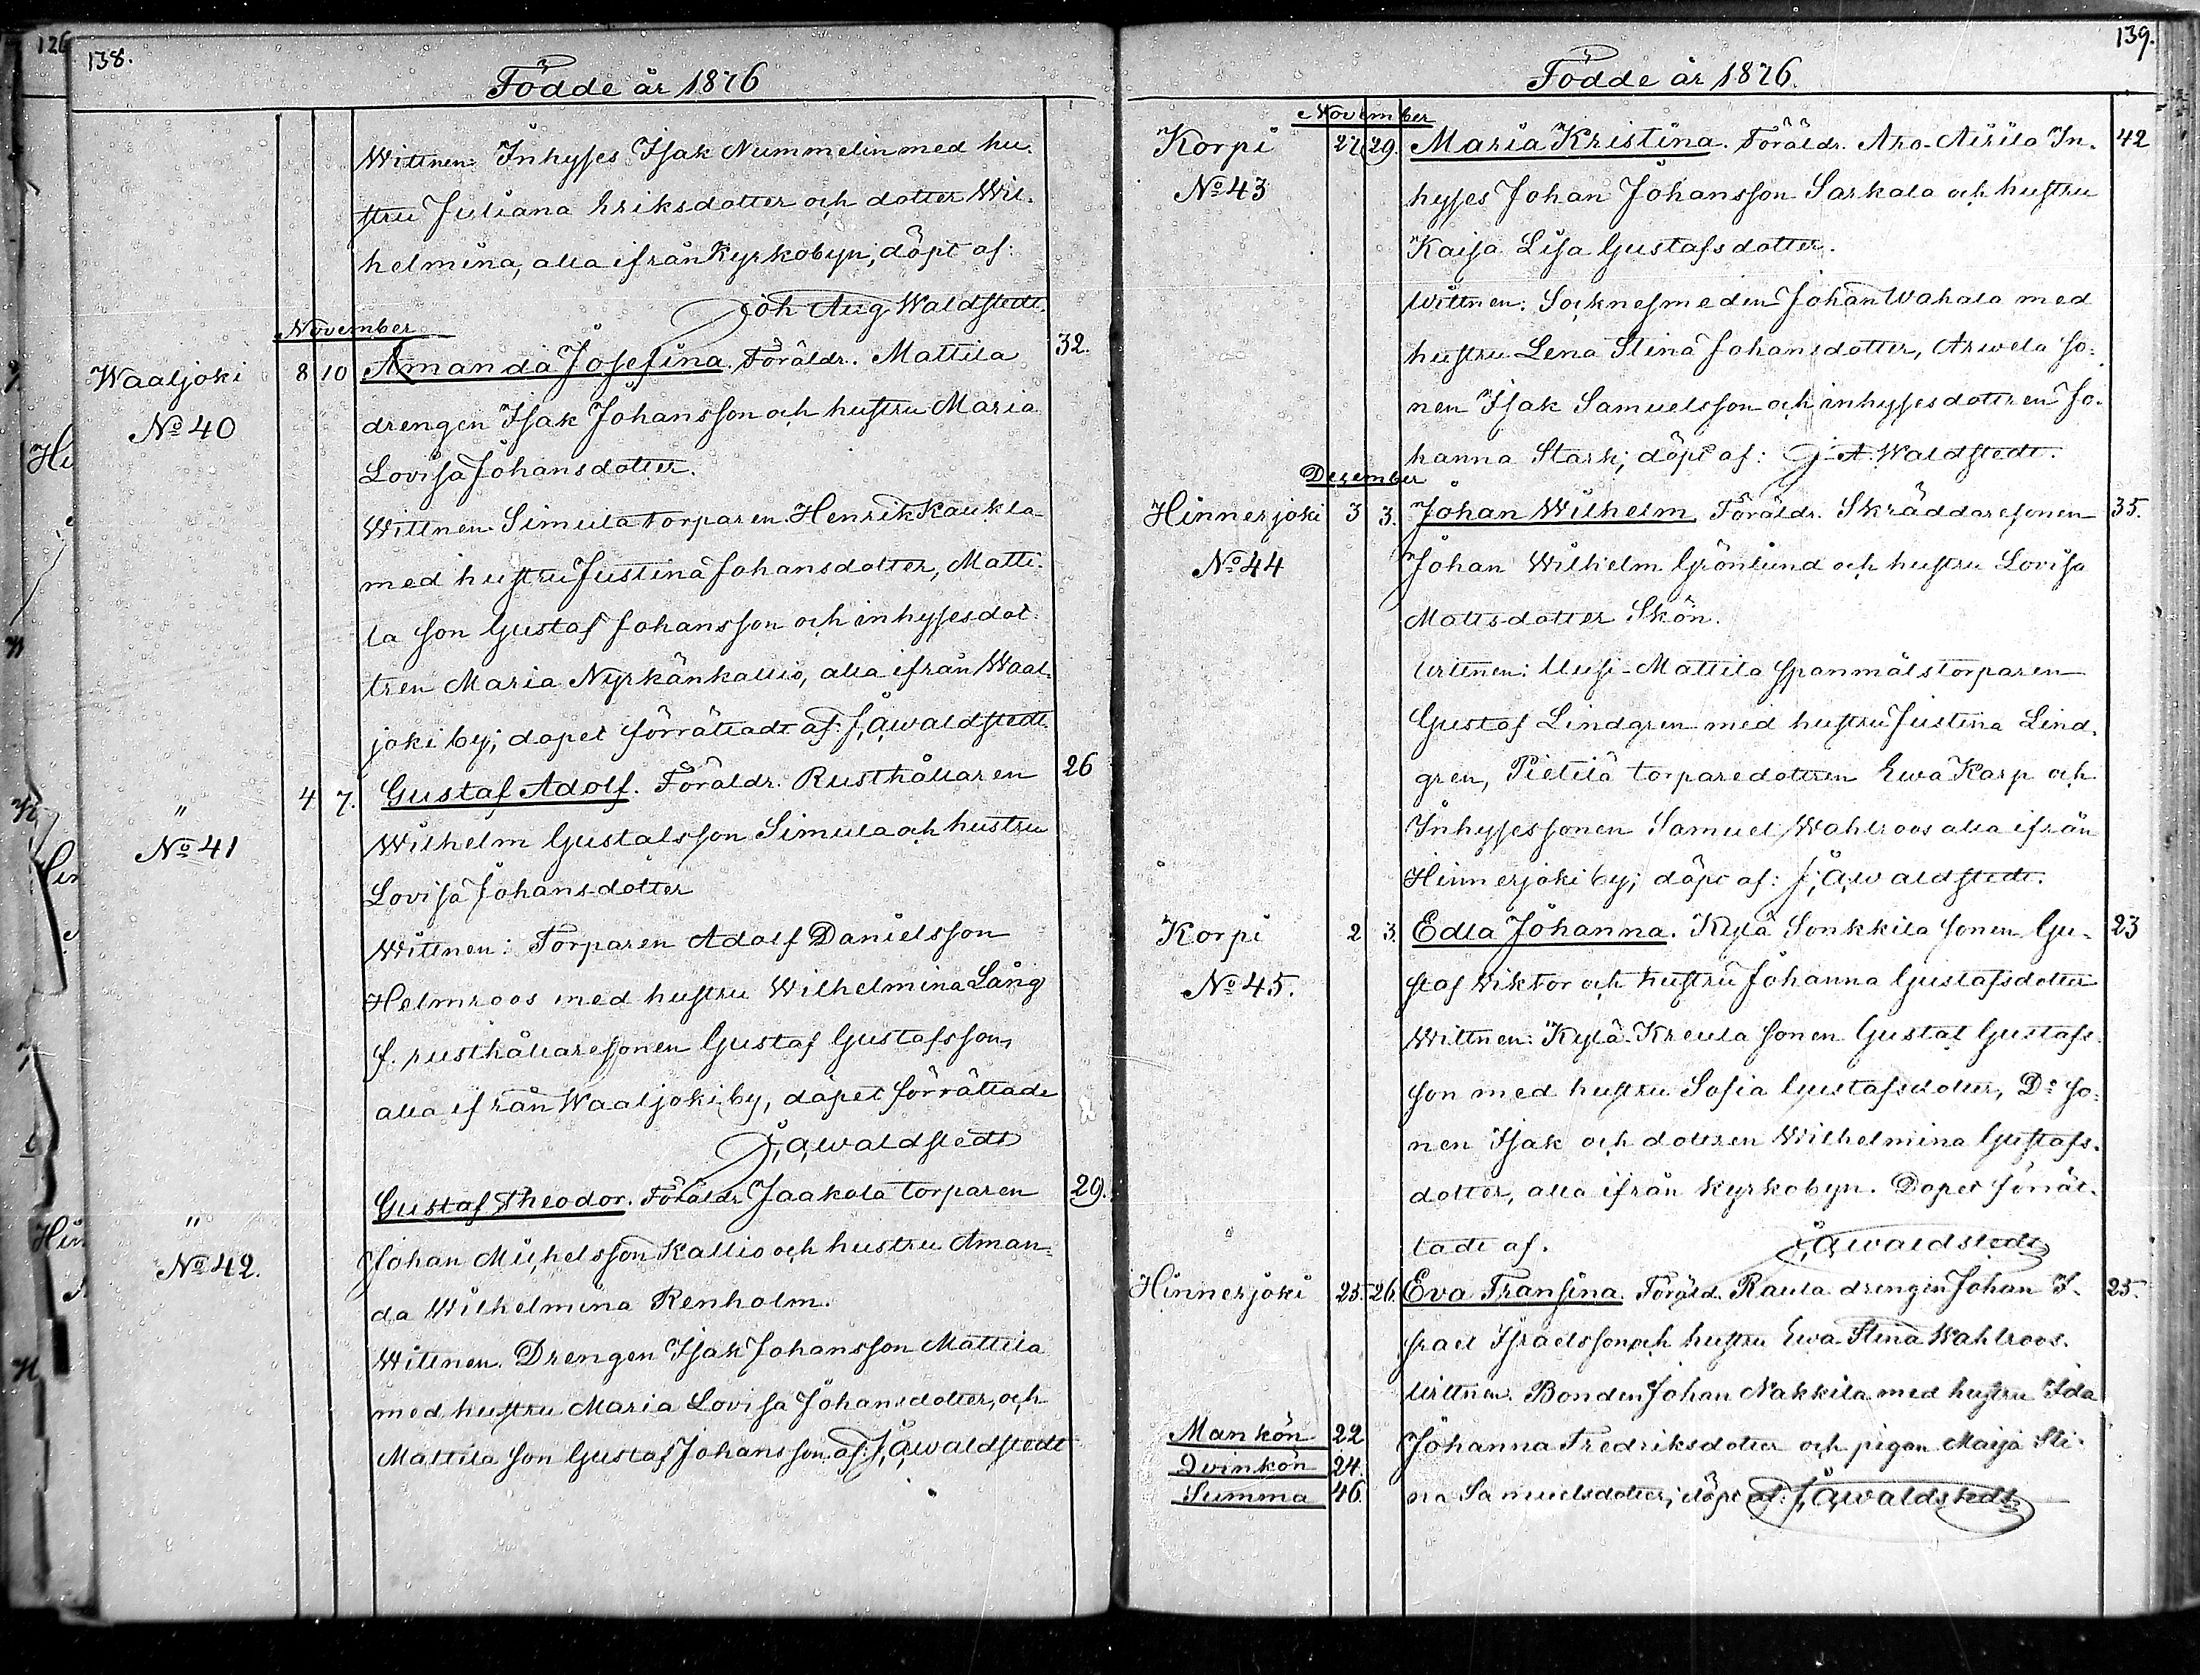 126
138.
Födde år 1876
Wittnen: Inhyses Isak Nummelin med hu-
stru Juliana Eriksdotter och dotter Wil-
helmina, alla ifrån Kyrkobyn; döpt af:
Joh Aug Waldstedt.
November
Waaljoki 8 10 Amanda Josefina. Föräldr. Mattila 32.
No 40 drengen Isak Johansson och hustru Maria
Lovisa Johansdotter.
Wittnen. Simula torparen Henrik Kaukla
med hustru Justina Johansdotter, Matti-
la son Gustaf Johansson och inhysesdot-
tren Maria Nyrkänkallio, alla ifrån Waal-
joki by; dopet förrättadt af: J, A, Waldstedt
" 4 7. Gustaf Adolf. Föräldr. Rusthållaren 26
No 41 Wilhelm Gustafsson Simula och hustru
Lovisa Johans-dotter
Wittnen: Torparen Adolf Danielsson
Helmroos med hustru Wilhelmina Lång
f. rusthållaresonen Gustaf Gustafsson,
alla ifrån Waaljoki by, dopet förrättade
J, A, Waldstedt
" Gustaf Theodor. Föräldr Jaakola torparen 29.
No 42. Johan Michelsson Kallio och hustru Aman-
da Wilhelmina Renholm.
Wittnen. Drengen Isak Johansson Mattila
med hustru Maria Lovisa Johansdotter, och
Mattila son Gustaf Johansson. af: J, A, Waldstedt
139.
Födde år 1876.
November
Korpi 27 29. Maria Kristina. Föräldr. Aro-Airila In- 42
No 43 hyses Johan Johansson Sarkala och hustru
Kaisa Lisa Gustafsdotter.
Wittnen: Socknesmeden Johan Wahala med
hustru Lena Stina Johansdotter, Arwela so-
nen Isak Samuelsson och inhysesdottren Jo-
hanna Stark; döpt af: J. A. Waldstedt.
Dezember
Hinnerjoki 3 3. Johan Wilhelm. Föräldr. Skräddaresonen 35.
No 44 Johan Wilhelm Grönlund och hustru Lovisa
Mattsdotter Skön.
Wittnen: Uusi-Mattila spanmålstorparen
Gustaf Lindgren med hustru Justina Lind-
gren, Pietilä torparedottren Ewa Karp och
Inhysessonen Samuel Wahlroos alla ifrån
Hinnerjoki by; döpt af: J, A, Waldstedt.
Korpi 2 3. Edla Johanna. Kylä Sonkkila sonen Gu- 23
No 45. staf Viktor och hustru Johanna Gustafsdotter
Wittnen: Kylä-Kreula sonen Gustaf Gustafs-
son med hustru Sofia Gustafsdotter, Do so-
nen Isak och dottren Wilhelmina Gustafs-
dotter, alla ifrån Kyrkobyn. Dopet förrät-
tadt af. J, A, Waldstedt
Hinnerjoki 25. 26. Eva Fransina. Föräld. Raula drengen Johan I- 25.
srael Israelsson och hustru Ewa Stina Wahlroos.
Wittnen. Bonden Johan Nakkila med hustru Ida
Mankön 22 Johanna Fredriksdotter och pigan Maija Sti-
Qvinkön 24.
Summa 46. na Samuelsdotter; döpt af: J, A, Waldstedt